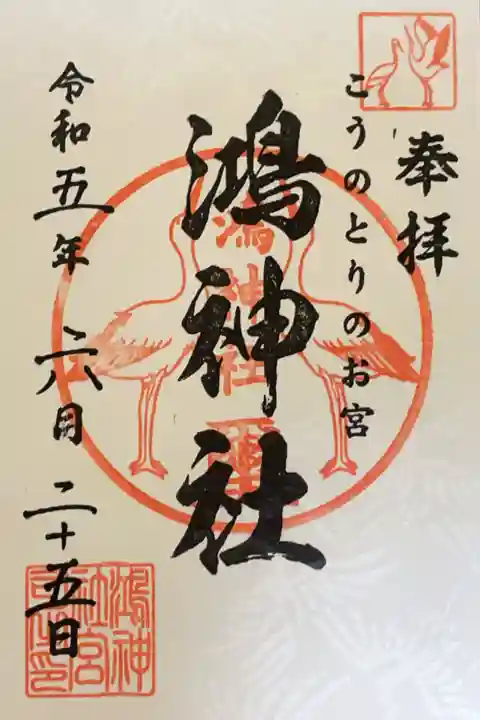 奉拝
こうのとりのお宮
鴻神社
鴻神社璽
令和五年 六月 二十五日
鴻神
社宮
司之印